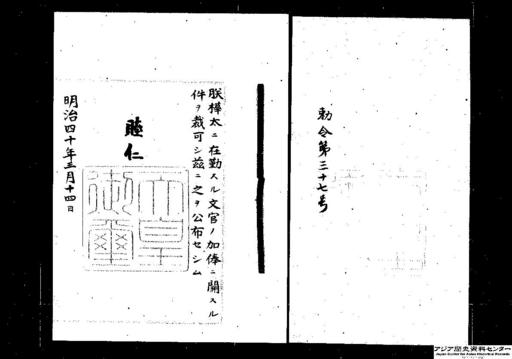 勅令第三十七号
朕樺太ニ在勤スル文官ノ加俸ニ関スル
件ヲ裁可シ茲ニ之ヲ公布セシム
睦仁
天皇
御璽
明治四十年三月十四日
アジア歴史資料センター
Japan Center for Asian Historical Records